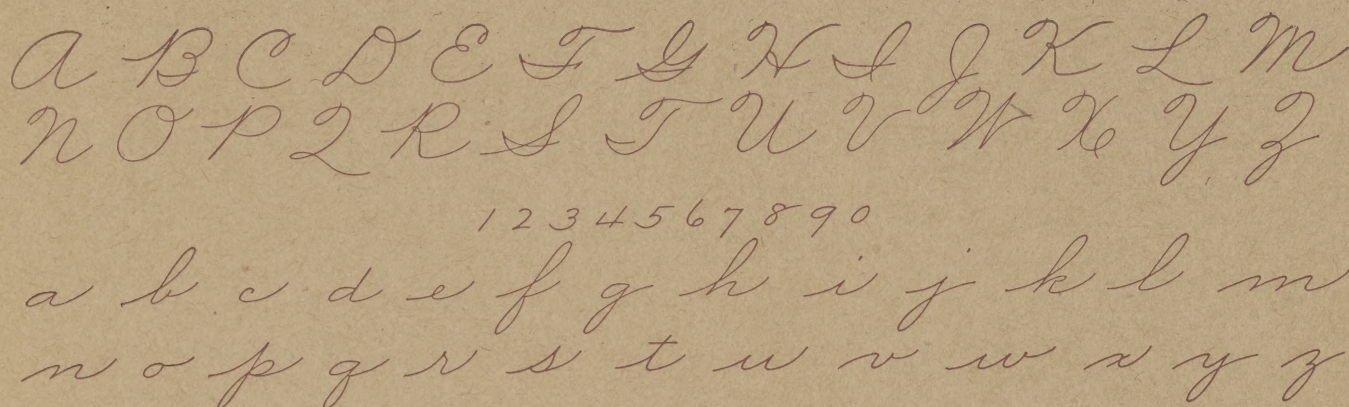 A B C D E F G H I J K L M
N O P Q R S T U V W X Y Z
1 2 3 4 5 6 7 8 9 0
a b c d e f g h i j k l m
n o p q r s t u v w x y z